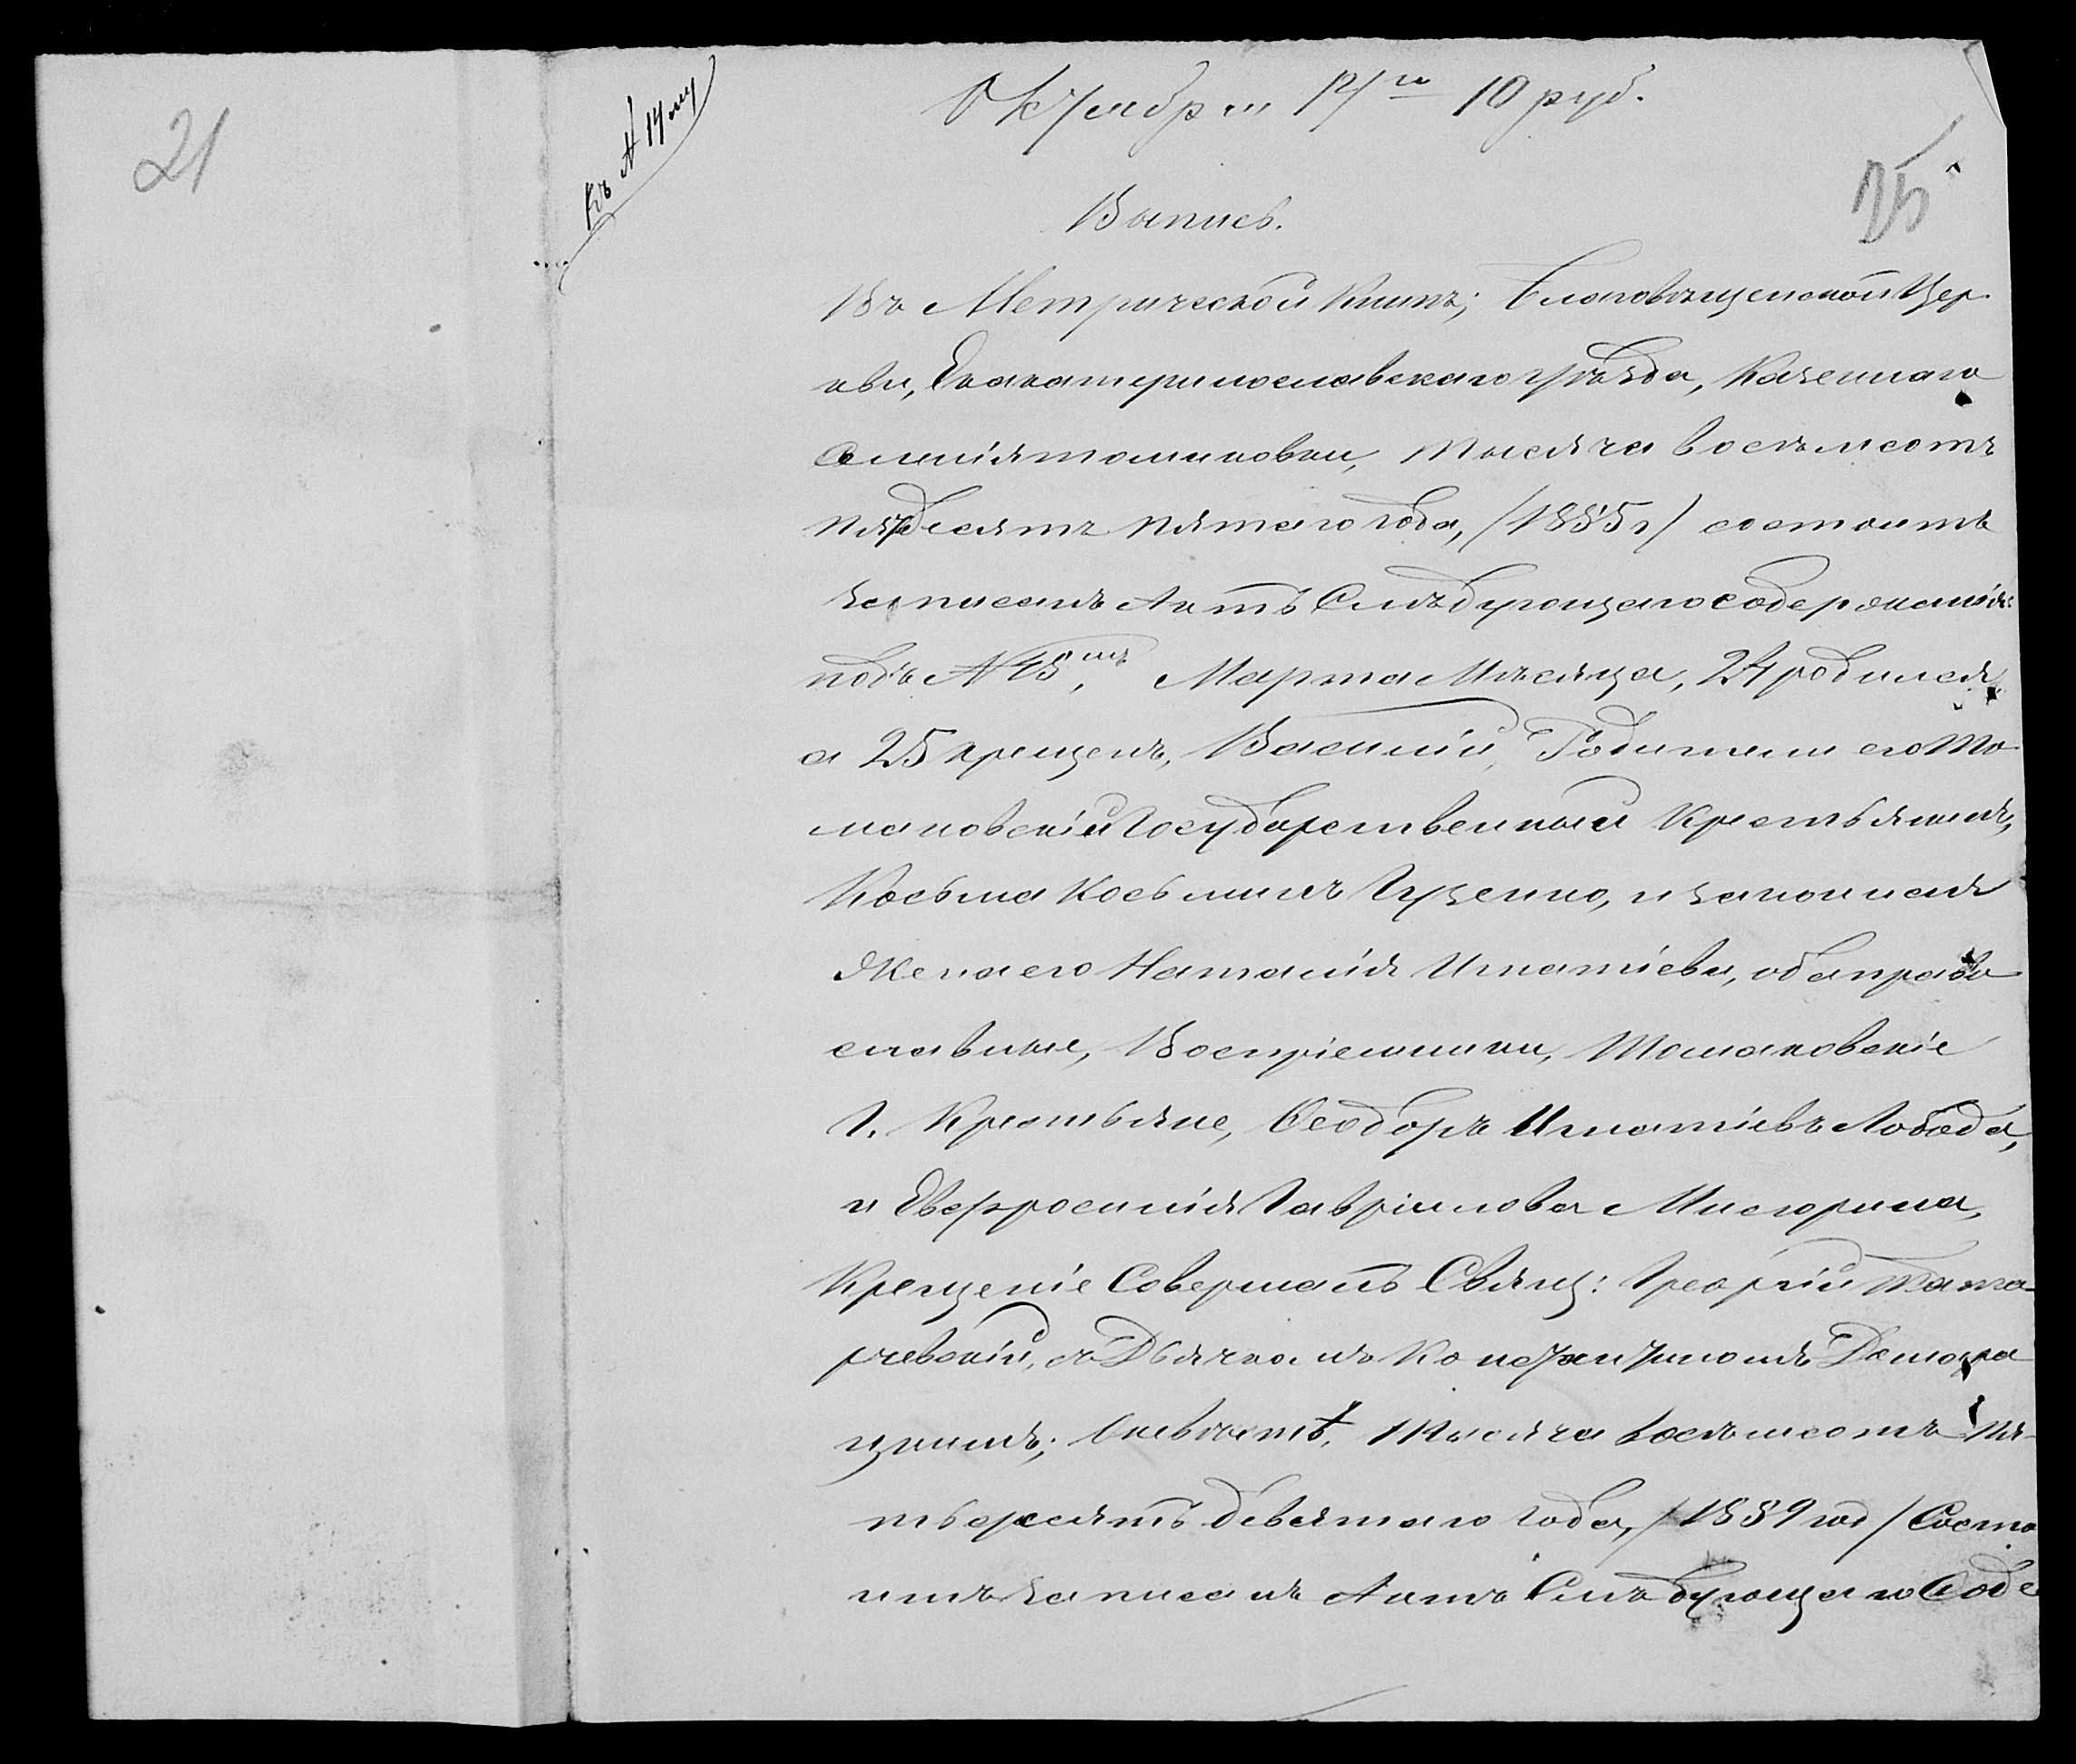 21
къ № 14му
Октября 14го 10 руб.
35
Выпись.
Въ Метрической Книгѣ, Благовѣщенской Цер-
кви, Екатеринославскаго уѣзда, Казеннаго
Селенія томаковки, тысяча восемьсотъ
пядесятъ пятаго года, /1855 г/ состоитъ
записанъ Актъ Слѣдующаго содержанія:
подъ № 45мъ, Марта Мѣсяца, 24 родился
а 25 крещенъ, Василій, Родители его То
маковскій Государственный Крестьянинъ,
Косьма Косьминъ Гуценко, и законная
Жена его Наталія Игнатіева, оба право
славные, Воспріемники, Томаковскіе
Г. Крестьяне, Ѳеодоръ Игнатіевъ Лобода,
и Евфросинія Гавріилова Мисюрина,
Крещеніе Совершалъ Свящ: Георгій
с Дьячкомъ Константиномъ
тысяча восемьсотъ пя-
тьдесятъ девятаго года, /1859 год/ Состо
итъ записанъ Актъ Слѣдующаго Соде